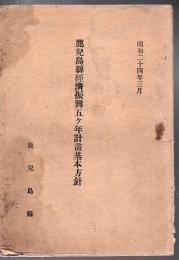 昭和二十四年三月
鹿兒島縣經濟振興五ヶ年計畫基本方針
鹿兒島縣